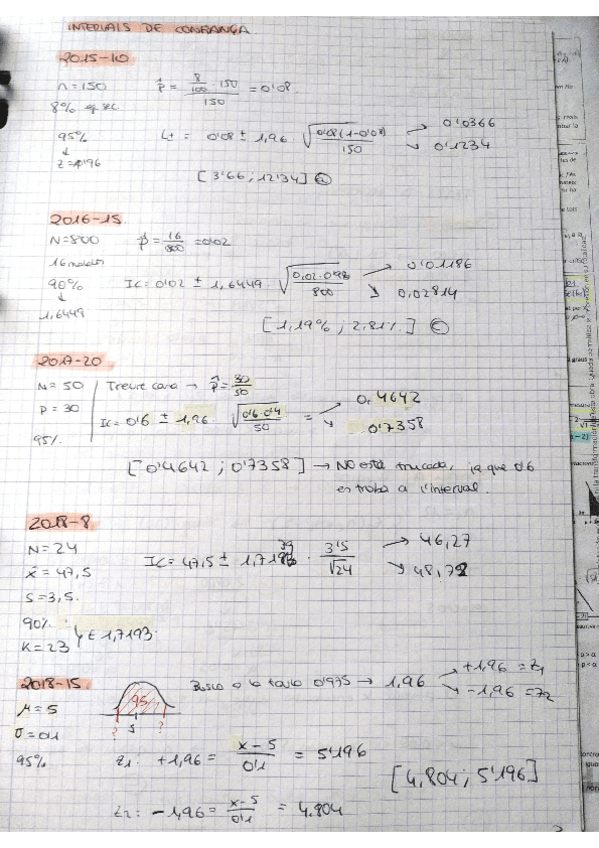 INTERVALS DE CONFIANÇA
2015-10
n=150 p̂ = 8/100 · 150 / 150 = 0'08
8% eq sec
95% L± = 0'08 ± 1,96 √(0'08(1-0'08)/150) → 0'0366
↓ ↘ 0'1234
z=1'96
[3'66 ; 12'34] a
2016-15
N=800 p̂ = 16/800 = 0'02
90% IC = 0'02 ± 1,6449 · √(0,02·0,98/800) → 0'01186
↓ ↘ 0,02814
1,6449
[1,19% ; 2,81%] c
2017-20
N=50 Treure cara → p̂ = 30/50
p=30 IC = 0'6 ± 1,96 · √(0'6·0'4/50) = → 0,4642
95%. ↘ 0'7358
[0'4642 ; 0'7358] → NO està trucada, ja que 0'6
es troba a l'interval.
2018-8
N=24 IC = 47,5 ± 1,7139 · 3'5/√24 → 46,27
x̄ = 47,5 ↘ 48,72
S=3,5.
90%.
K=23 } t 1,7193.
2018-15 Busco a la taula 0'975 → 1,96 → +1,96 = z1
μ=5 95 ↘ -1,96 = z2
σ=0'1 ? 5 ?
95% z1: +1,96 = x-5/0'1 = 5'196
[4,804 ; 5'196]
z2: -1,96 = x-5/0'1 = 4,804